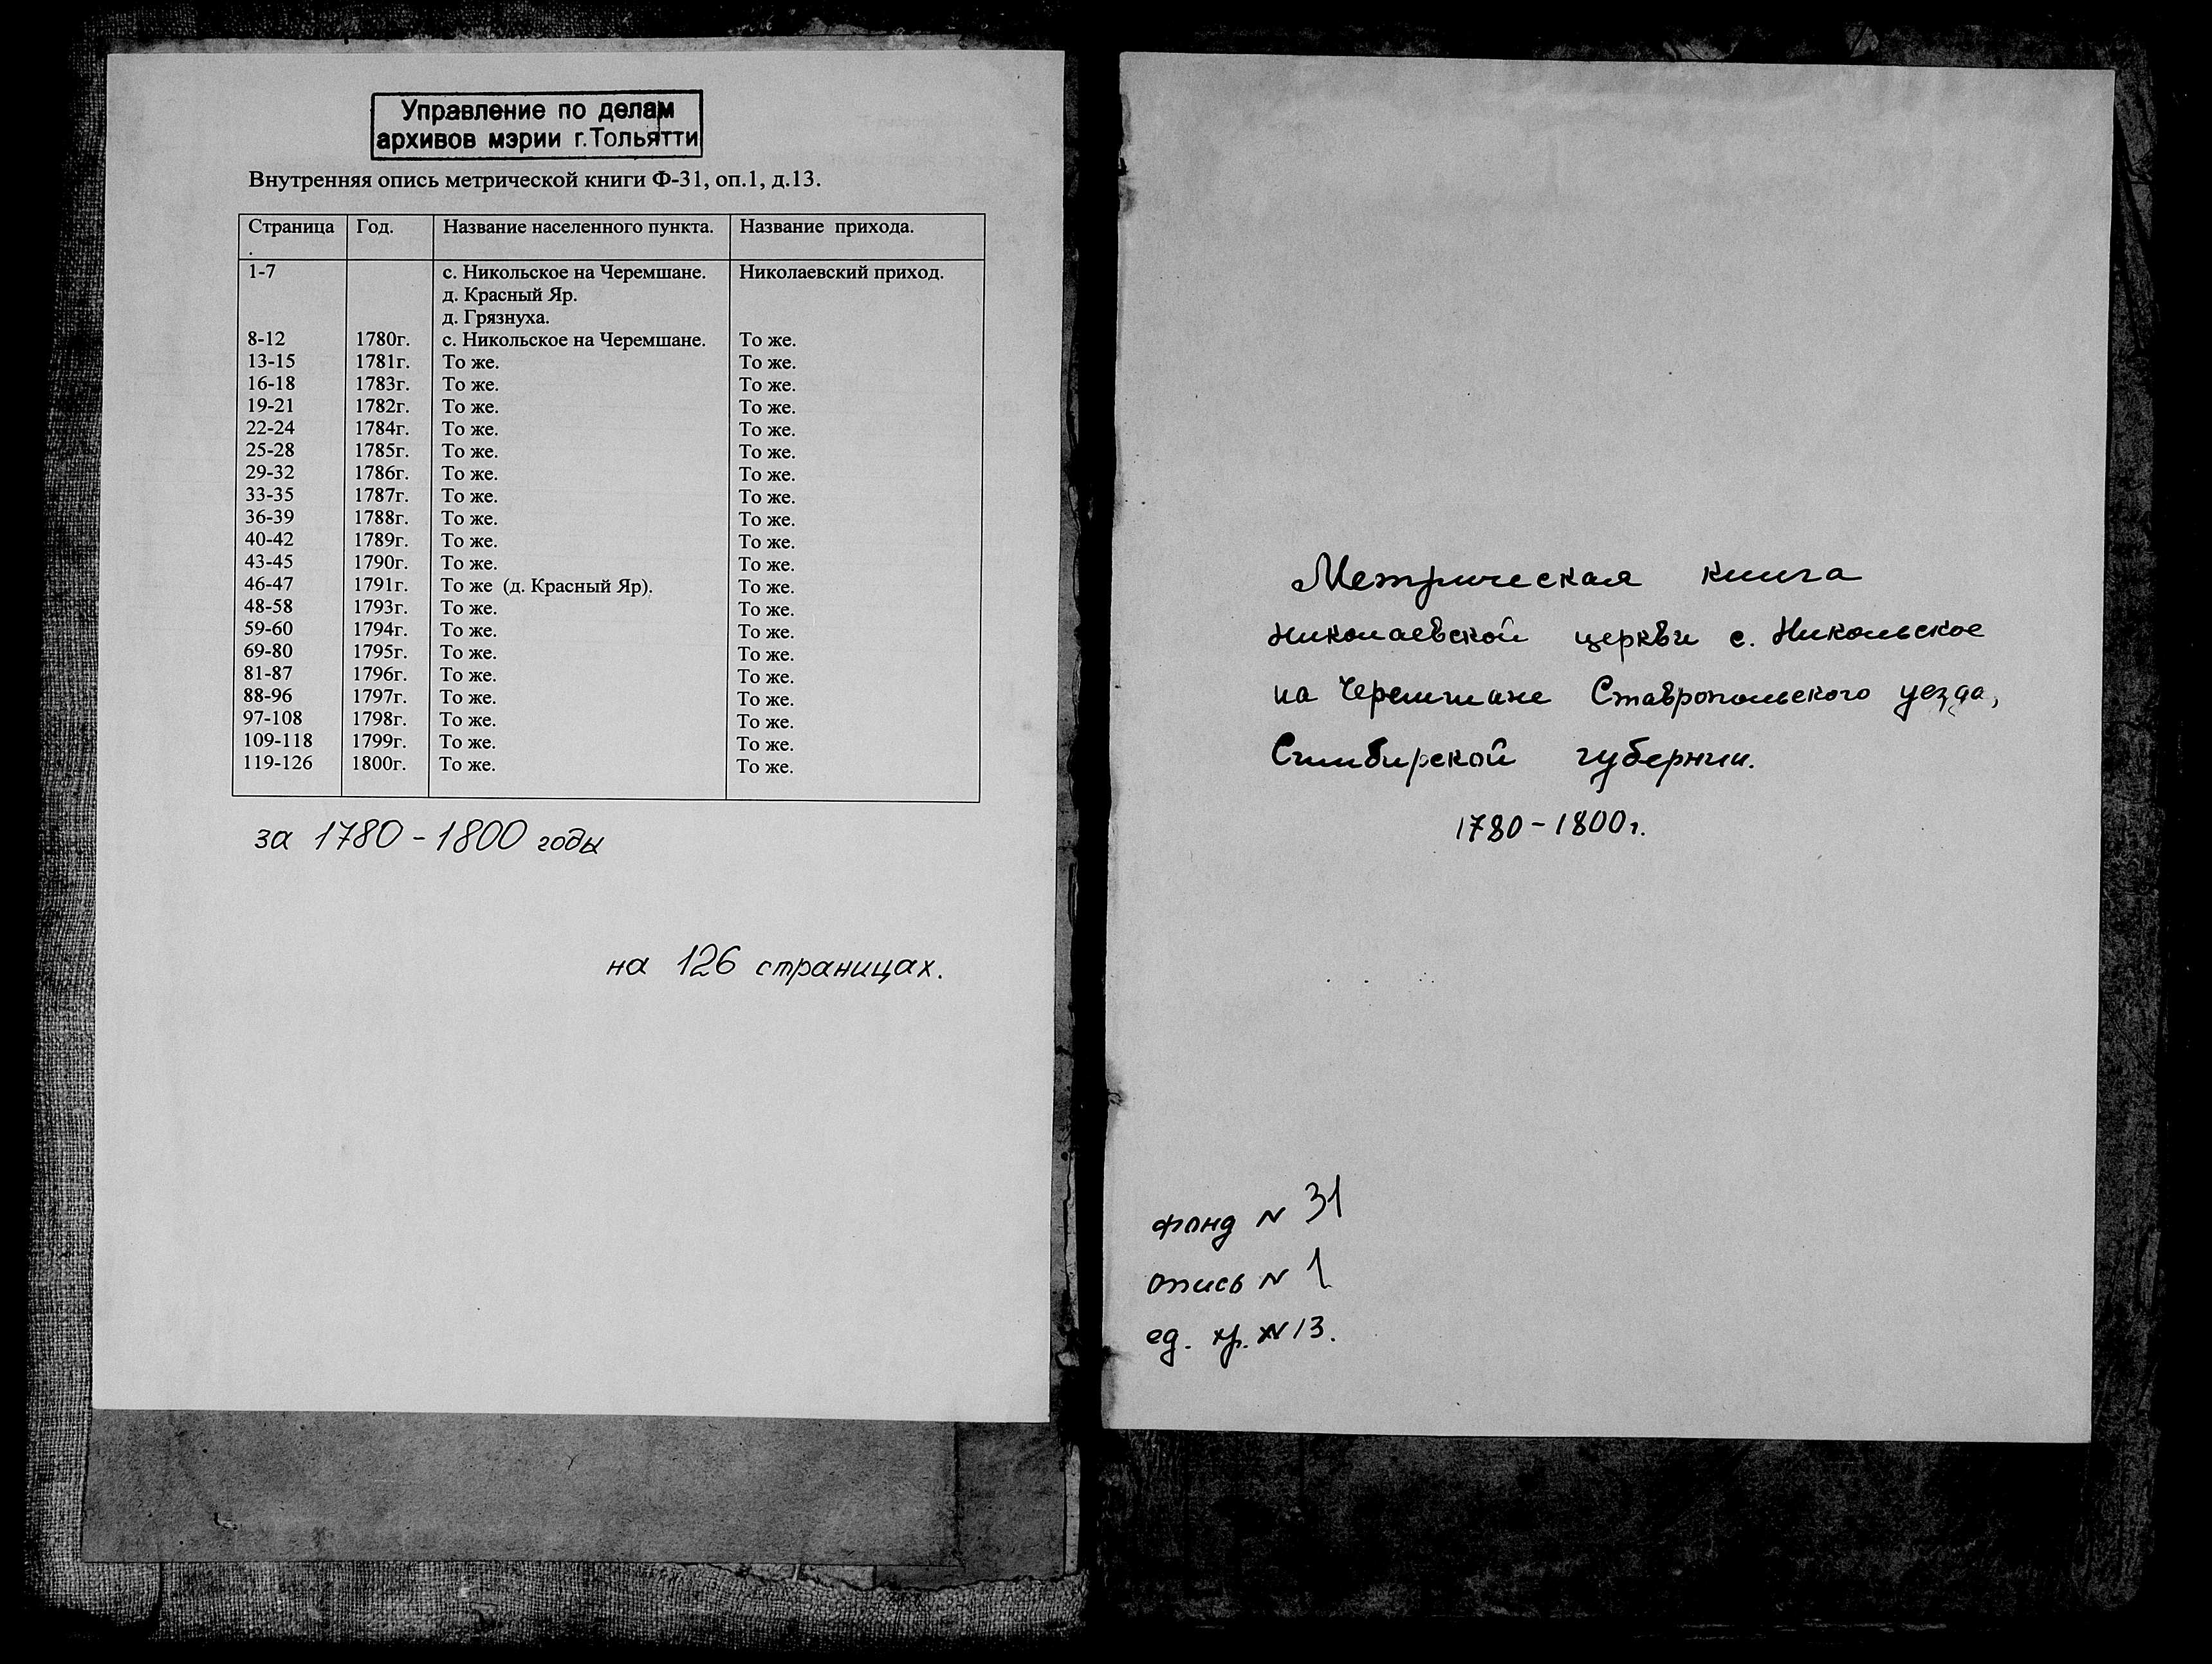 Управление по делам
архивов мэрии г.Тольятти
Внутренняя опись метрической книги Ф-31, оп.1, д.13.
Страница Год. Название населенного пункта. Название прихода.
.
1-7 с. Никольское на Черемшане. Николаевский приход.
д. Красный Яр.
д. Грязнуха.
8-12 1780г. с. Никольское на Черемшане. То же.
13-15 1781г. То же. То же.
16-18 1783г. То же. То же.
19-21 1782г. То же. То же.
22-24 1784г. То же. То же.
25-28 1785г. То же. То же.
29-32 1786г. То же. То же.
33-35 1787г. То же. То же.
36-39 1788г. То же. То же.
40-42 1789г. То же. То же.
43-45 1790г. То же. То же.
46-47 1791г. То же (д. Красный Яр). То же.
48-58 1793г. То же. То же.
59-60 1794г. То же. То же.
69-80 1795г. То же. То же.
81-87 1796г. То же. То же.
88-96 1797г. То же. То же.
97-108 1798г. То же. То же.
109-118 1799г. То же. То же.
119-126 1800г. То же. То же.
за 1780-1800 годы
на 126 страницах.
Метрическая книга
Николаевской церкви с. Никольское
на Черемшане Ставропольского уезда,
Симбирской губернии.
1780-1800г.
фонд N 31
опись N 1
ед. хр. N 13.